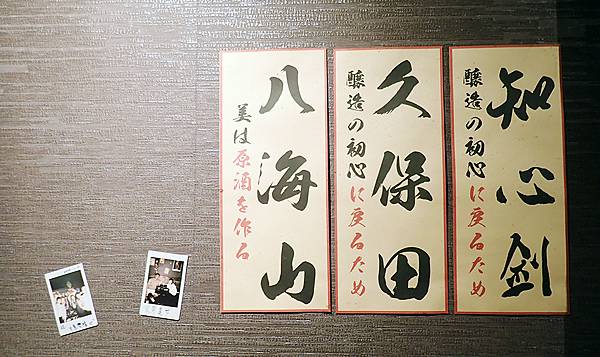 知心剑
醸造の初心に戻るため
久保田
醸造の初心に戻るため
八海山
美は原酒を作る